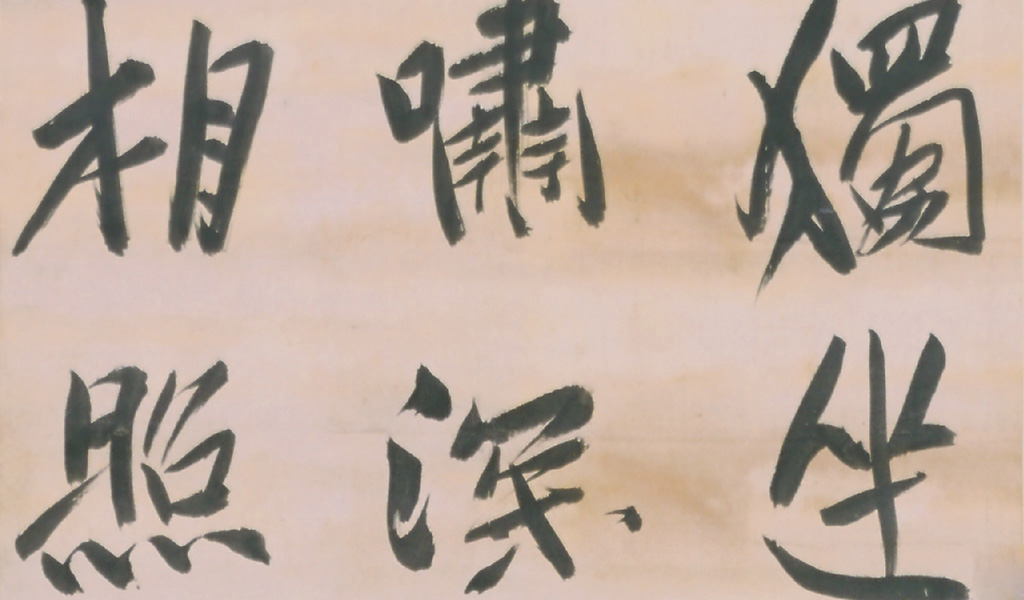 獨坐
嘯深
相照